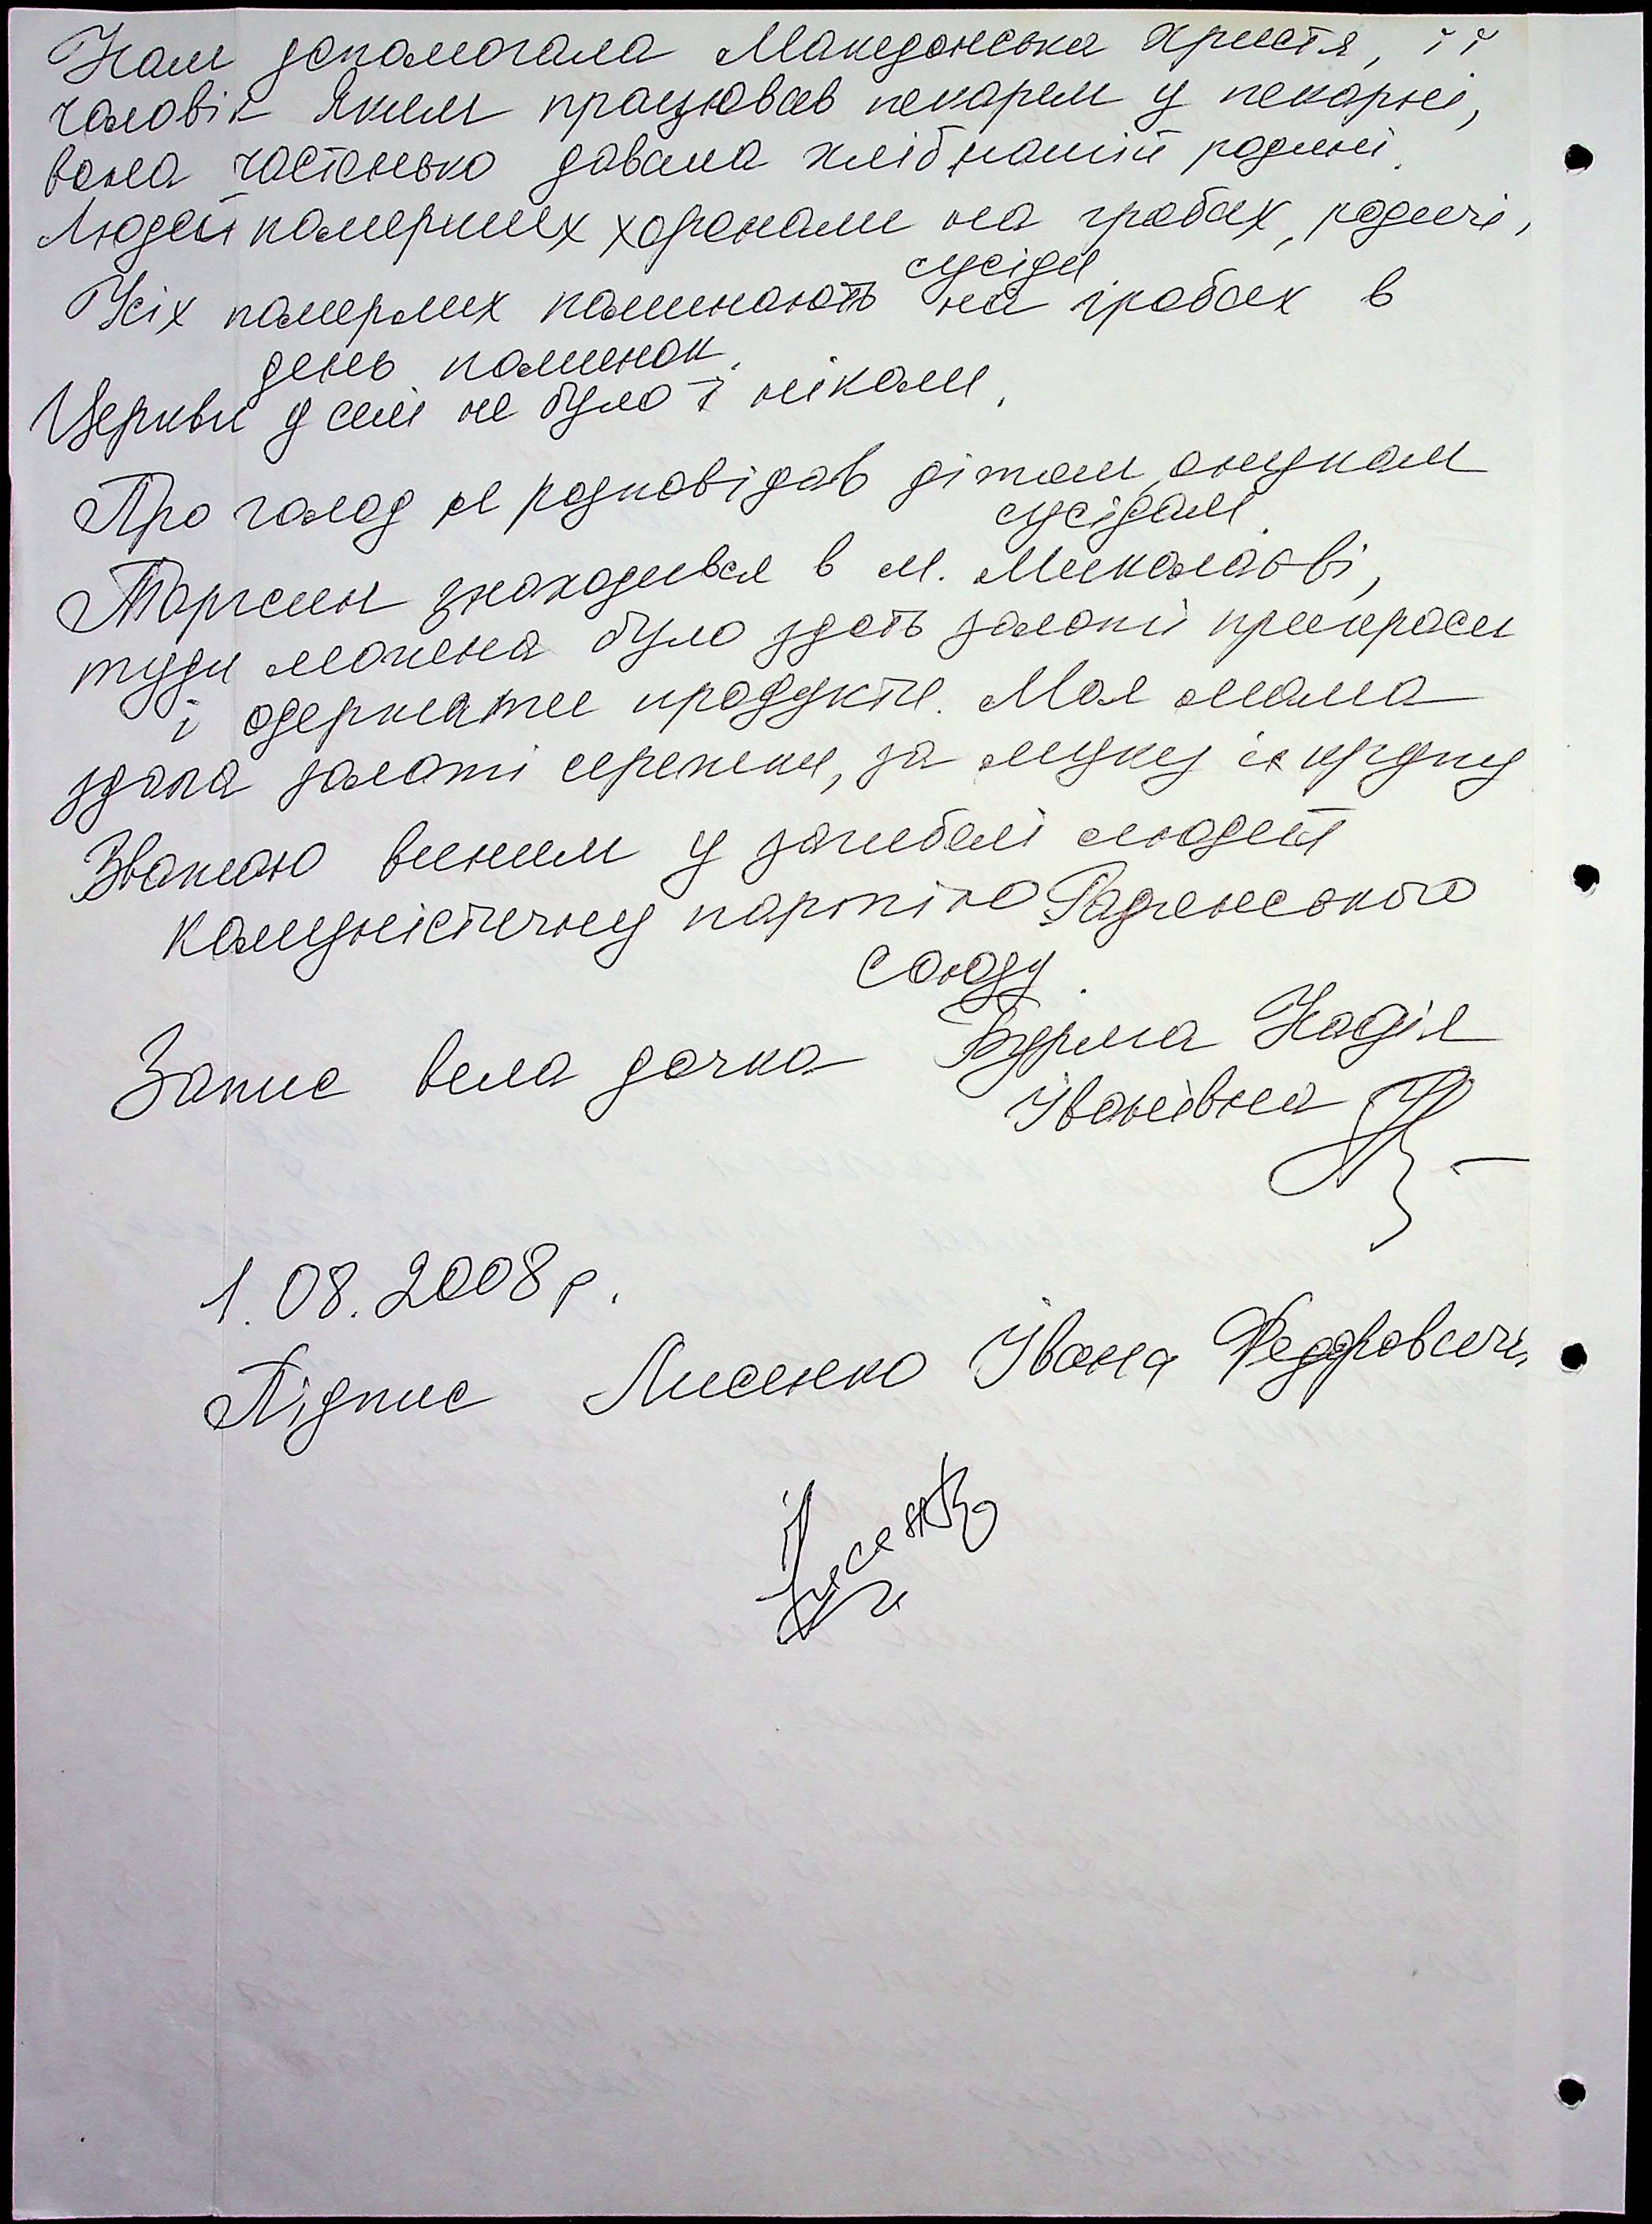 Нам допомогала Македонська Христя, її
чоловік Яким працював пекарем у пекарні,
вона частенько давала хліб нашій родині.
Людей померших хоронили на гробах, родичі,
сусіди
Усіх померлих поминають на гробах в
день поминок.
Церкви у селі не було і ніколи.
Про голод я розповідав дітям, онукам
сусідам.
Торгсин знаходився в м. Миколаєві,
туди можна було здать золоті прикраси
і одержати продукти. Моя мама
здала золоті сережки, за муку і крупу
Вважаю винним у загибелі людей
комуністичну партію Радянського
союзу.
Запис вела дочка Бурма Надія
Іванівна
1.08.2008 р.
Підпис Лисенко Івана Федоровича
Лисенко